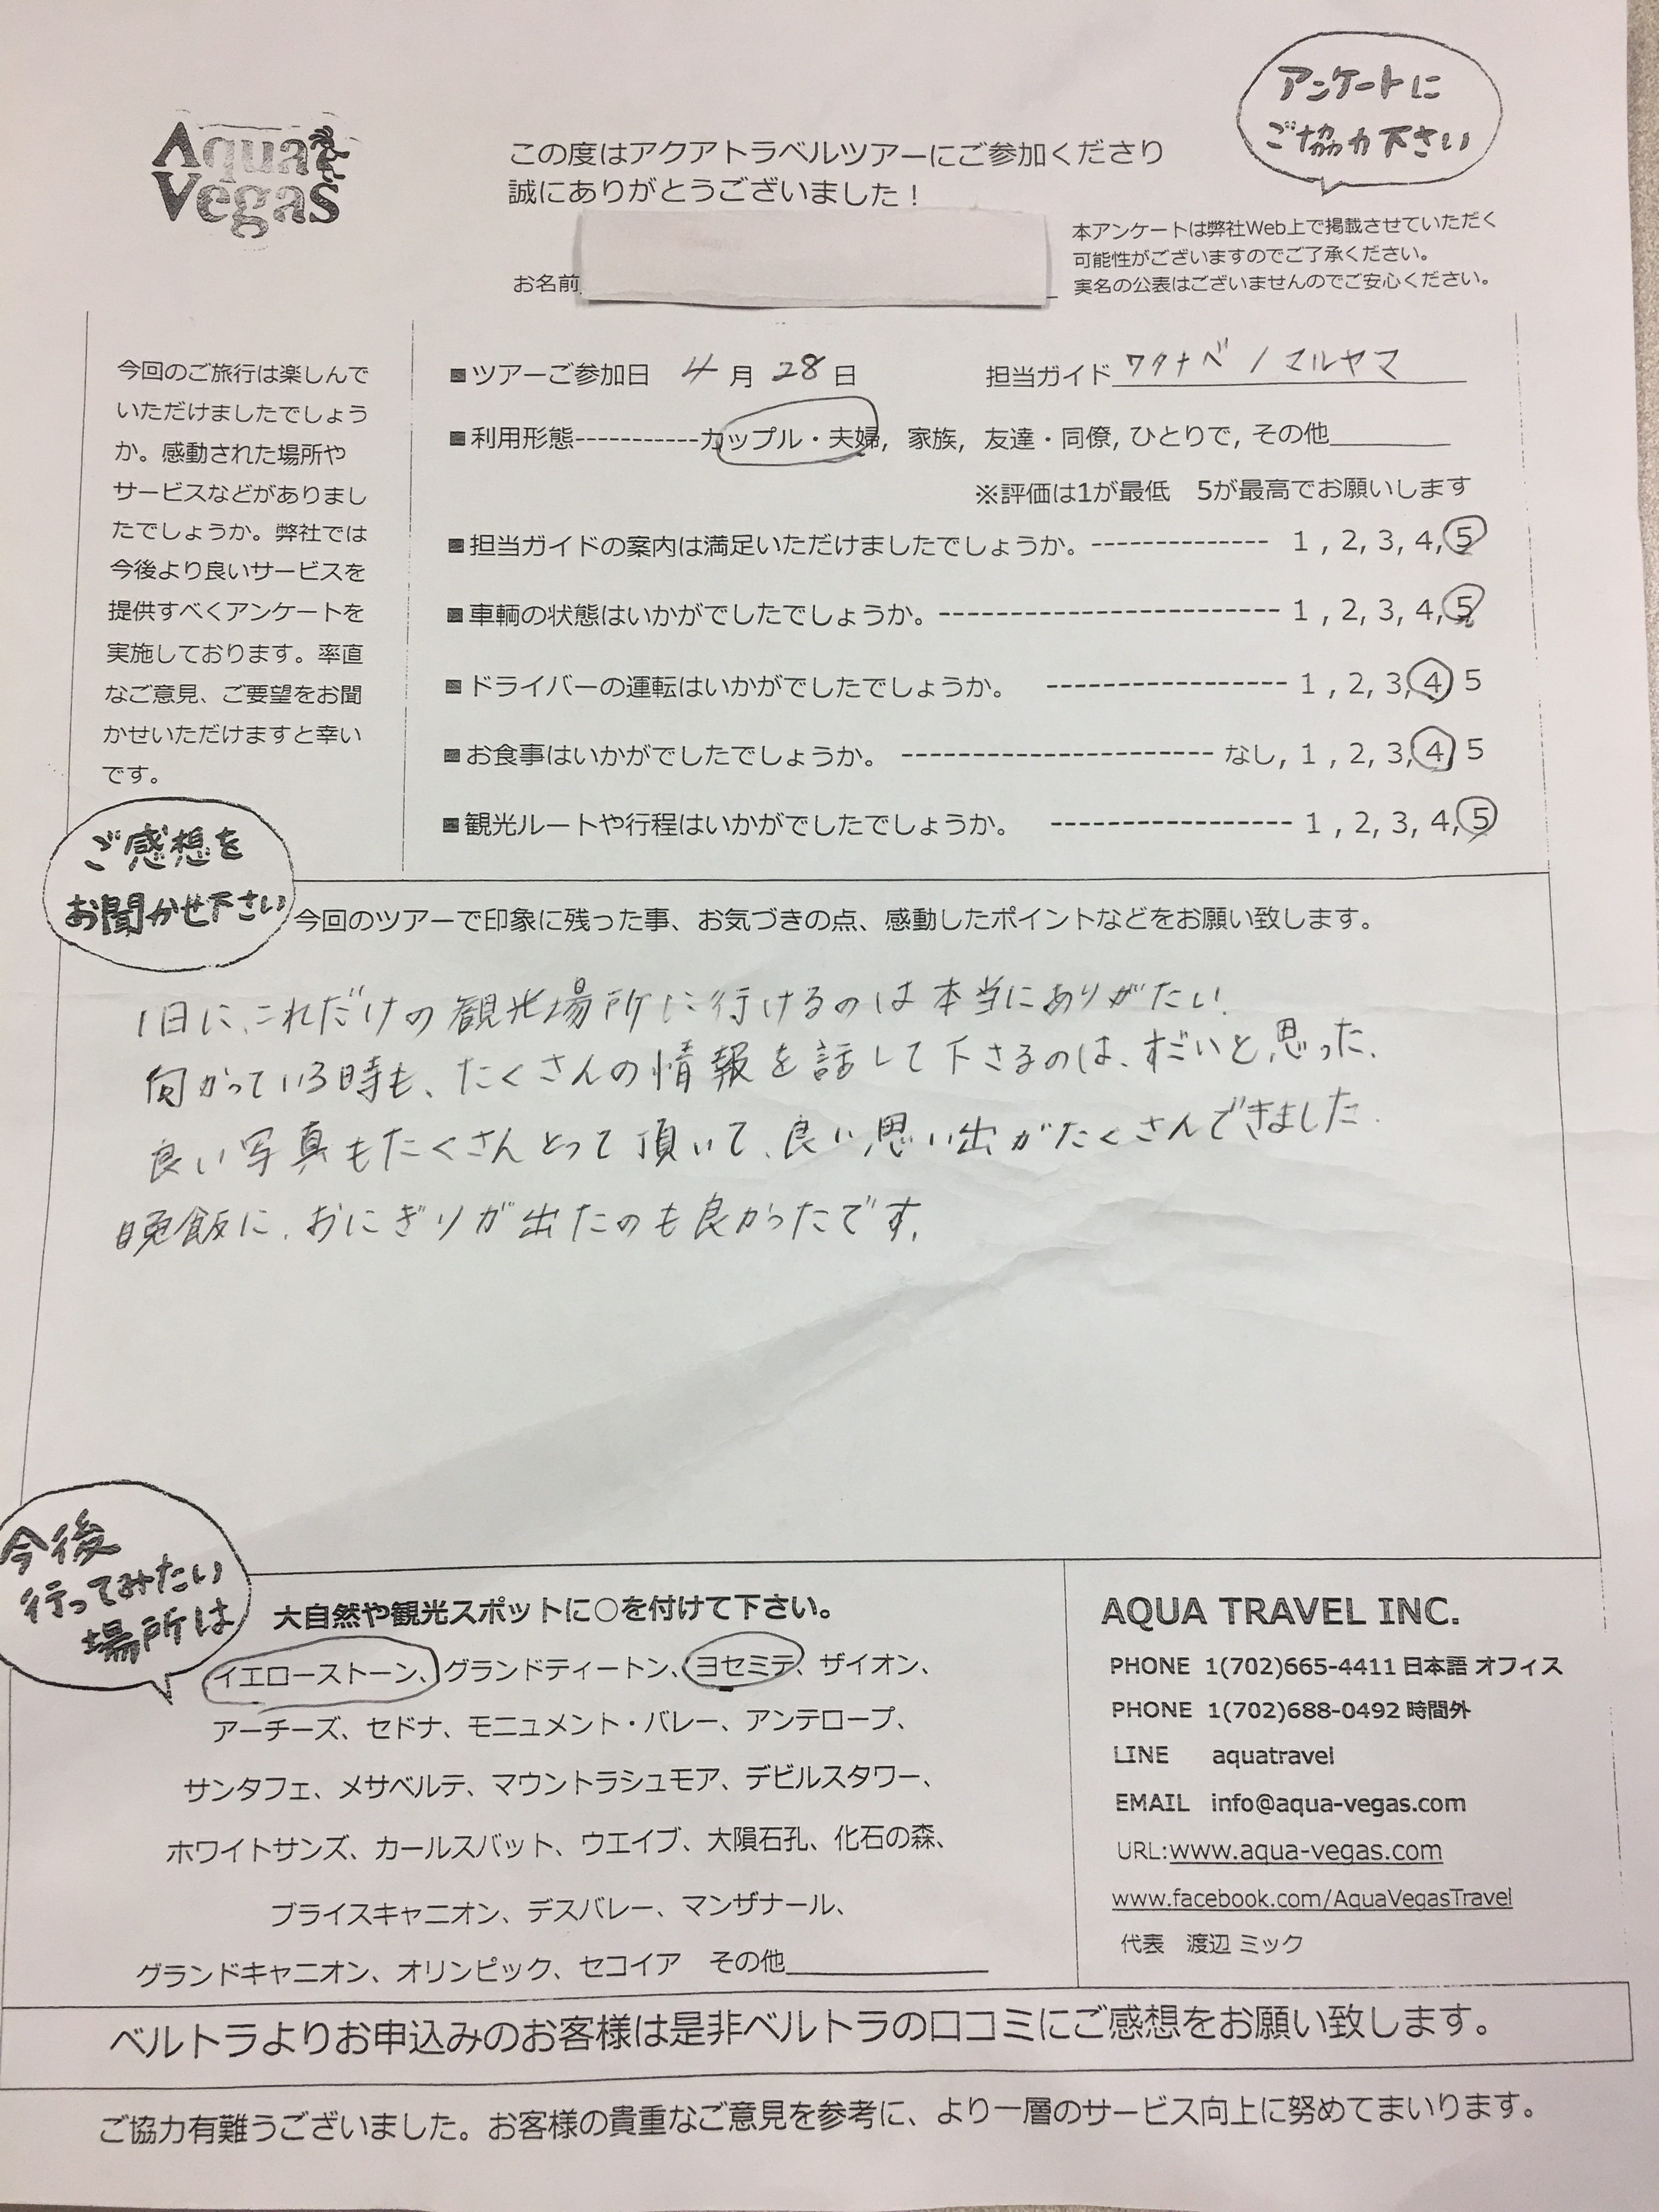 Aqua
Vegas
アンケートに
ご協力下さい
この度はアクアトラベルツアーにご参加くださり
誠にありがとうございました！
お名前
本アンケートは弊社Web上で掲載させていただく
可能性がございますのでご了承ください。
実名の公表はございませんのでご安心ください。
今回のご旅行は楽しんで
いただけましたでしょう
か。感動された場所や
サービスなどがありまし
たでしょうか。弊社では
今後より良いサービスを
提供すべくアンケートを
実施しております。率直
なご意見、ご要望をお聞
かせいただけますと幸い
です。
■ツアーご参加日 4月28日 担当ガイド ワタナベ / マルヤマ
■利用形態-----------カップル・夫婦, 家族, 友達・同僚, ひとりで, その他________
※評価は1が最低 5が最高でお願いします
■担当ガイドの案内は満足いただけましたでしょうか。------------- 1 , 2, 3, 4, 5
■車輌の状態はいかがでしたでしょうか。------------------------- 1 , 2, 3, 4, 5
■ドライバーの運転はいかがでしたでしょうか。 ----------------- 1 , 2, 3, 4, 5
■お食事はいかがでしたでしょうか。 ---------------------- なし, 1 , 2, 3, 4, 5
■観光ルートや行程はいかがでしたでしょうか。 ----------------- 1 , 2, 3, 4, 5
ご感想を
お聞かせ下さい
今回のツアーで印象に残った事、お気づきの点、感動したポイントなどをお願い致します。
1日に、これだけの観光場所に行けるのは本当にありがたい。
向かっている時も、たくさんの情報を話して下さるのは、すごいと思った。
良い写真もたくさんとって頂いて、良い思い出がたくさんできました。
晩飯に、おにぎりが出たのも良かったです。
今後
行ってみたい
場所は
大自然や観光スポットに○を付けて下さい。
イエローストーン、グランドティートン、ヨセミテ、ザイオン、
アーチーズ、セドナ、モニュメント・バレー、アンテロープ、
サンタフェ、メサベルテ、マウントラシュモア、デビルスタワー、
ホワイトサンズ、カールスバット、ウエイブ、大隕石孔、化石の森、
ブライスキャニオン、デスバレー、マンザナール、
グランドキャニオン、オリンピック、セコイア その他____________
AQUA TRAVEL INC.
PHONE 1(702)665-4411 日本語 オフィス
PHONE 1(702)688-0492 時間外
LINE aquatravel
EMAIL info@aqua-vegas.com
URL:www.aqua-vegas.com
www.facebook.com/AquaVegasTravel
代表 渡辺 ミック
ベルトラよりお申込みのお客様は是非ベルトラの口コミにご感想をお願い致します。
ご協力有難うございました。お客様の貴重なご意見を参考に、より一層のサービス向上に努めてまいります。